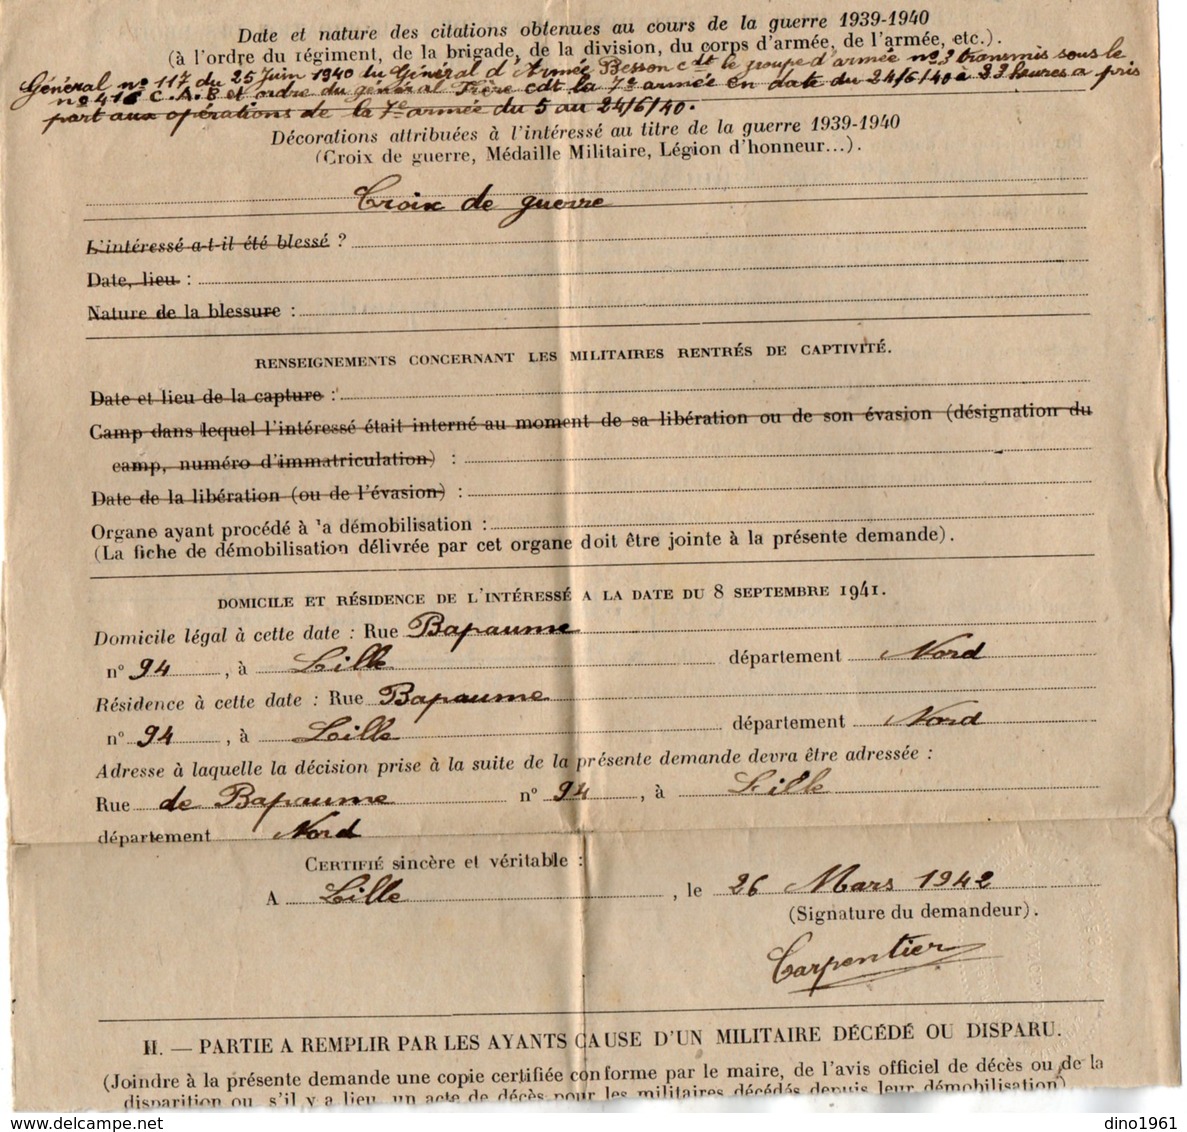 Date et nature des citations obtenues au cours de la guerre 1939-1940
(à l'ordre du régiment, de la brigade, de la division, du corps d'armée, de l'armée, etc.).
Général n° 117 du 25 Juin 1940 du Général d'Armée Besson cdt le groupe d'armée n° 3 transmis sous le
n° 416 C.A.B et ordre du général Frère cdt la 7e armée en date du 24/6/40 à 22 heures a pris
part aux opérations de la 7e armée du 5 au 24/6/40.
Décorations attribuées à l'intéressé au titre de la guerre 1939-1940
(Croix de guerre, Médaille Militaire, Légion d'honneur...).
Croix de guerre
L'intéressé a-t-il été blessé ?
Date, lieu :
Nature de la blessure :
RENSEIGNEMENTS CONCERNANT LES MILITAIRES RENTRÉS DE CAPTIVITÉ.
Date et lieu de la capture :
Camp dans lequel l'intéressé était interné au moment de sa libération ou de son évasion (désignation du
camp, numéro d'immatriculation) :
Date de la libération (ou de l'évasion) :
Organe ayant procédé à 'a démobilisation :
(La fiche de démobilisation délivrée par cet organe doit être jointe à la présente demande).
DOMICILE ET RÉSIDENCE DE L'INTÉRESSÉ A LA DATE DU 8 SEPTEMBRE 1941.
Domicile légal à cette date : Rue Bapaume
n° 94, à Lille département Nord
Résidence à cette date : Rue Bapaume
n° 94, à Lille département Nord
Adresse à laquelle la décision prise à la suite de la présente demande devra être adressée :
Rue de Bapaume n° 94, à Lille
département Nord
CERTIFIÉ sincère et véritable :
A Lille, le 26 Mars 1942
(Signature du demandeur).
Carpentier
II. — PARTIE A REMPLIR PAR LES AYANTS CAUSE D'UN MILITAIRE DÉCÉDÉ OU DISPARU.
(Joindre à la présente demande une copie certifiée conforme par le maire, de l'avis officiel de décès ou de la
disparition ou, s'il y a lieu, un acte de décès pour les militaires décédés depuis leur démobilisation)
dino1961